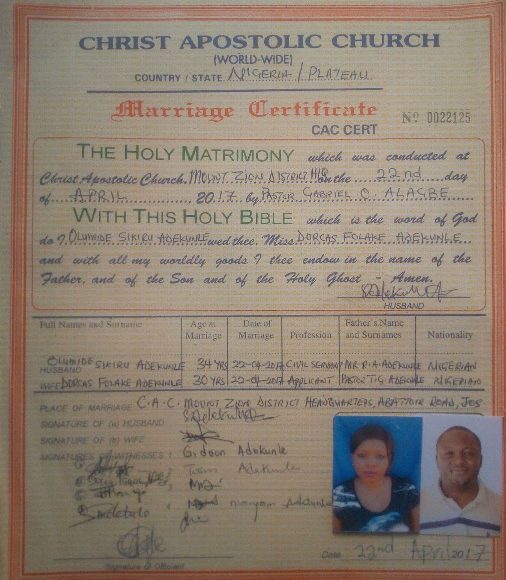 CHRIST APOSTOLIC CHURCH
(WORLD-WIDE)
COUNTRY / STATE NIGERIA / PLATEAU
Marriage Certificate
CAC CERT
Nº 0022125
THE HOLY MATRIMONY which was conducted at
Christ Apostolic Church, MOUNT ZION DISTRICT H/Q on the 22nd day
of APRIL, 2017 by PASTOR GABRIEL O. ALAGBE
WITH THIS HOLY BIBLE which is the word of God
do I OLUMIDE SIKIRU ADEKUNLE wed thee, Miss DORCAS FOLAKE ADEKUNLE
and with all my worldly goods I thee endow in the name of the
Father, and of the Son and of the Holy Ghost - Amen.
HUSBAND
Full Names and Surname Age at Marriage Date of Marriage Profession Father's Name and Surnames Nationality
OLUMIDE SIKIRU ADEKUNLE 34 YRS 22-04-2017 CIVIL SERVANT MR R.A. ADEKUNLE NIGERIAN
HUSBAND
WIFE DORCAS FOLAKE ADEKUNLE 30 YRS 22-04-2017 APPLICANT PASTOR ADEKUNLE NIGERIAN
PLACE OF MARRIAGE C.A.C. MOUNT ZION DISTRICT HEADQUARTERS, ABATTOIR ROAD, JOS
SIGNATURE OF (a) HUSBAND
SIGNATURE OF (b) WIFE
SIGNATURES OF WITNESSES 1 Gideon Adekunle
Adekunle
Signature of Officient
Date 22nd April 2017